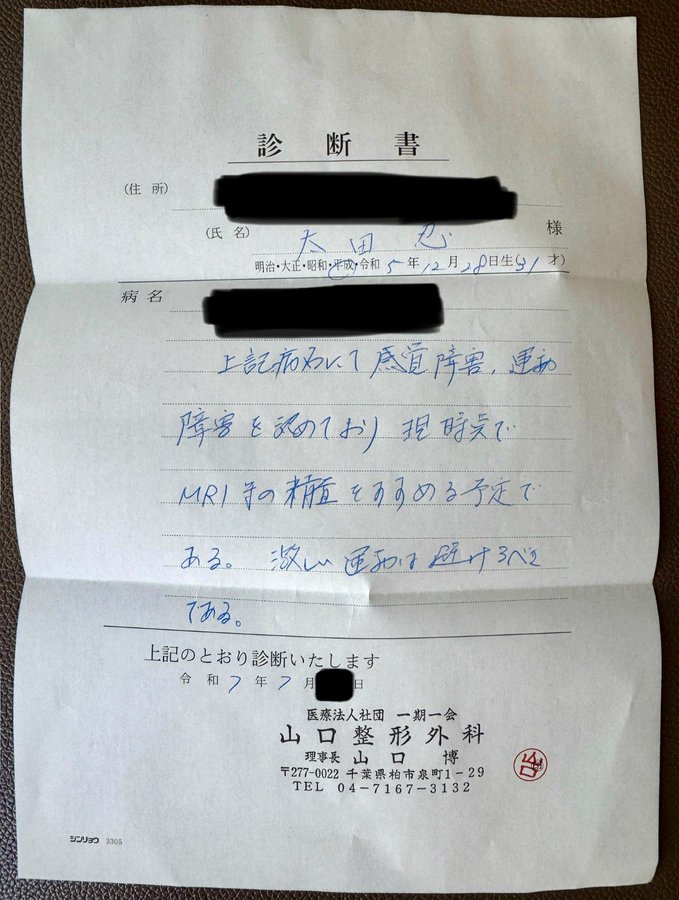 診断書
(住所)
(氏名) 太田 忍 様
明治・大正・昭和・平成・令和 5年12月28日生(31才)
病名
上記病名にて感覚障害、運動
障害を認めており現時点で
MRI等の精査をすすめる予定で
ある。激しい運動は避けるべき
である。
上記のとおり診断いたします
令和7年7月 日
医療法人社団 一期一会
山口整形外科
理事長 山口 博
〒277-0022 千葉県柏市泉町1-29
TEL 04-7167-3132
山口
シンリョウ 3365